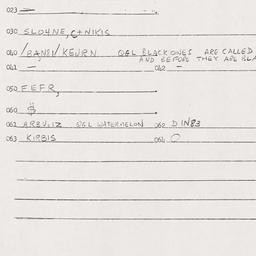 023 —
030 SLOWNE, C+NIKIS
040 /BANSI/KEURN Q&L BLACK ONES ARE CALLED
AND BEFORE THEY ARE BLA
041 — 042 —
050 F.E.F.R,
060
061 ARBUIZ Q&L WATERMELON 062 DIN83
063 KIRBIS 064 O